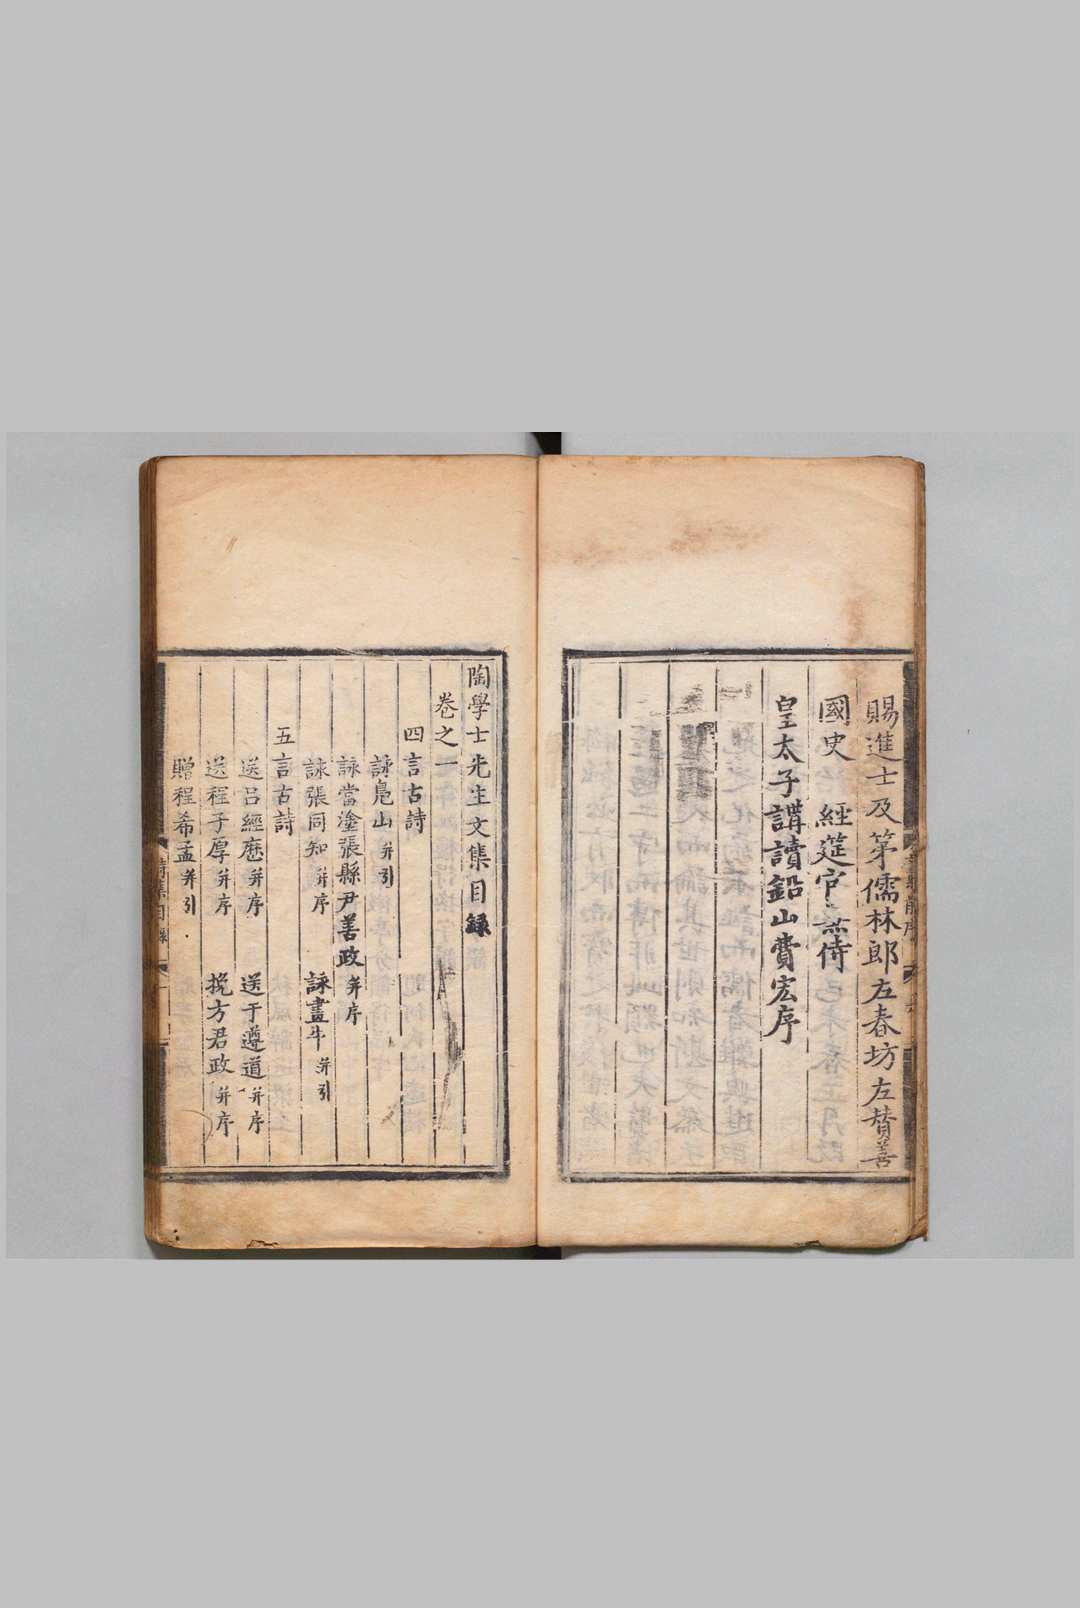 賜進士及第儒林郎左春坊左賛善
國史　經筵官兼侍
皇太子講讀鉛山費宏序
陶學士先生文集目録
卷之一
四言古詩
詠鳧山并引
詠當塗張縣尹善政并序
詠張同知并序　詠畫牛并引
五言古詩
送呂經歷并序　送于遵道并序
送程子厚并序　挽方君政并序
贈程希孟并引